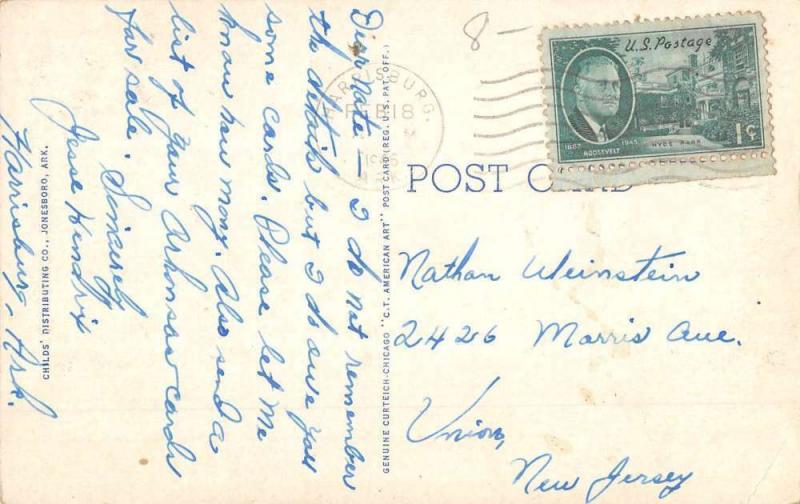 Dear Nate, I do not remember
the details but I do owe you
some cards. Please let me
know how many. Also send a
list of your Arkansas cards
for sale. Sincerely
Jesse Hendrix
Harrisburg, Ark.
CHILDS' DISTRIBUTING CO., JONESBORO, ARK.
GENUINE CURTEICH-CHICAGO "C.T. AMERICAN ART" POST CARD (REG. U.S. PAT. OFF.)
8-
HARRISBURG,
FEB 18
ARK
U.S. Postage
1882
1945
ROOSEVELT
HYDE PARK
1¢
POST CARD
Nathan Weinstein
2426 Morris Ave.
Union,
New Jersey